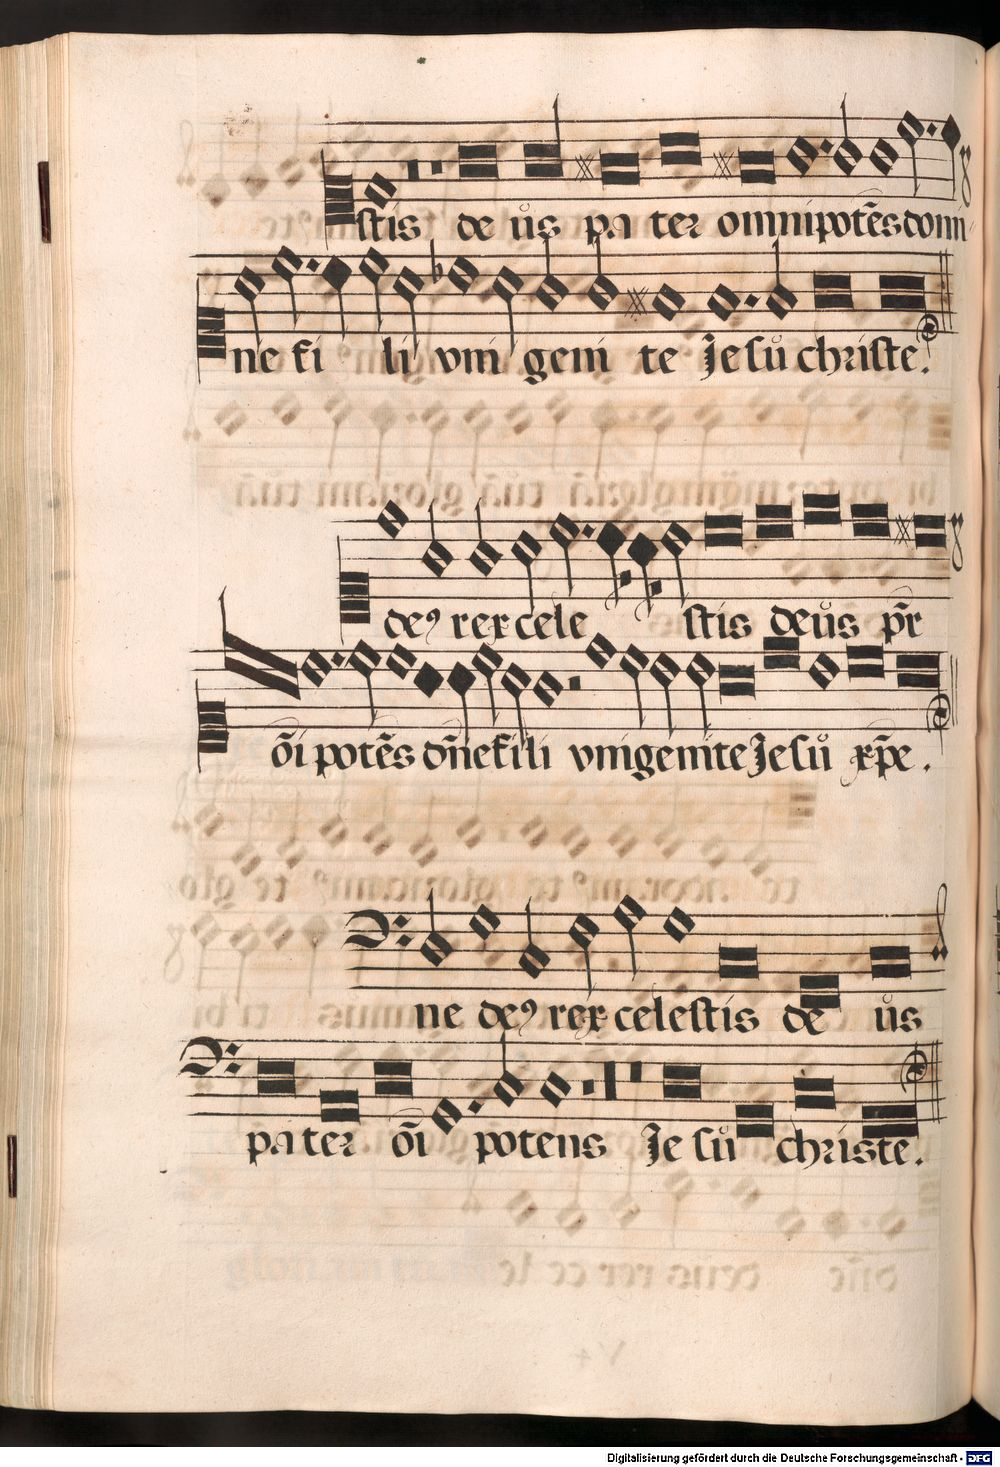 stis de us pa ter omnipotēs domi-
ne fi li vni geni te Jesů christe.
deꝰ rex cele stis deůs pr̄
ōi potēs dn̄e fili vnigenite Jesů xp̄e.
ne deꝰ rex celestis de ůs
pater ōi potens Je sů christe.
Digitalisierung gefördert durch die Deutsche Forschungsgemeinschaft - DFG